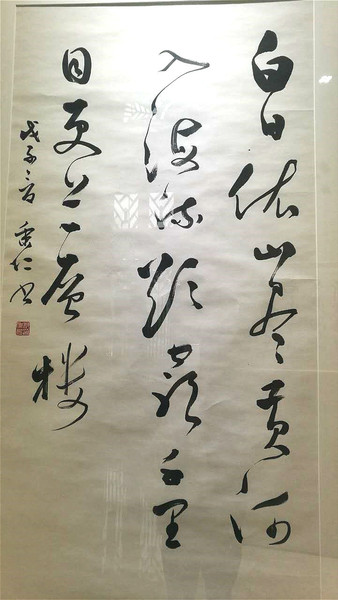 白日依山尽黄河
入海流欲穷千里
目更上一层楼
戊子 仁书